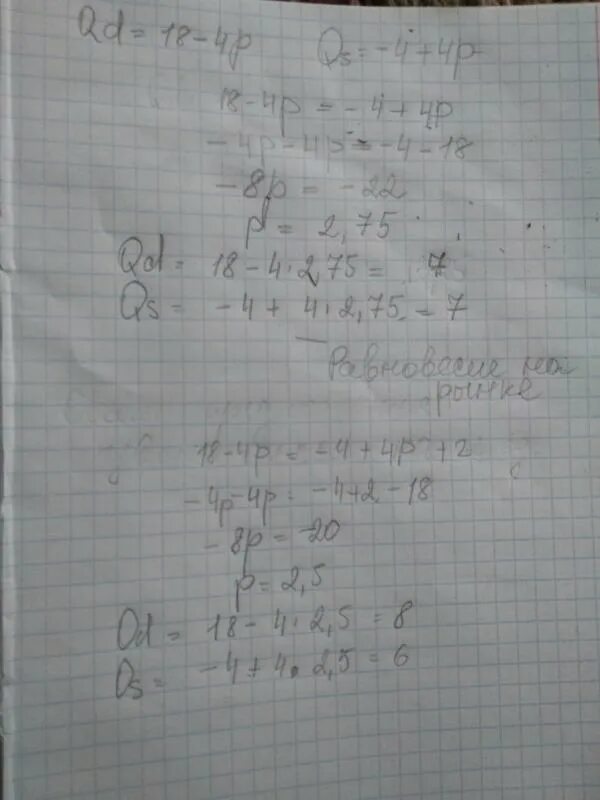 Qd = 18 - 4p Qs = -4 + 4p
18 - 4p = -4 + 4p
-4p - 4p = -4 - 18
-8p = -22
p = 2,75
Qd = 18 - 4·2,75 = 7
Qs = -4 + 4·2,75 = 7
Равновесие на
рынке
18 - 4p = -4 + 4p + 2
-4p - 4p = -4 + 2 - 18
-8p = -20
p = 2,5
Qd = 18 - 4·2,5 = 8
Qs = -4 + 4·2,5 = 6